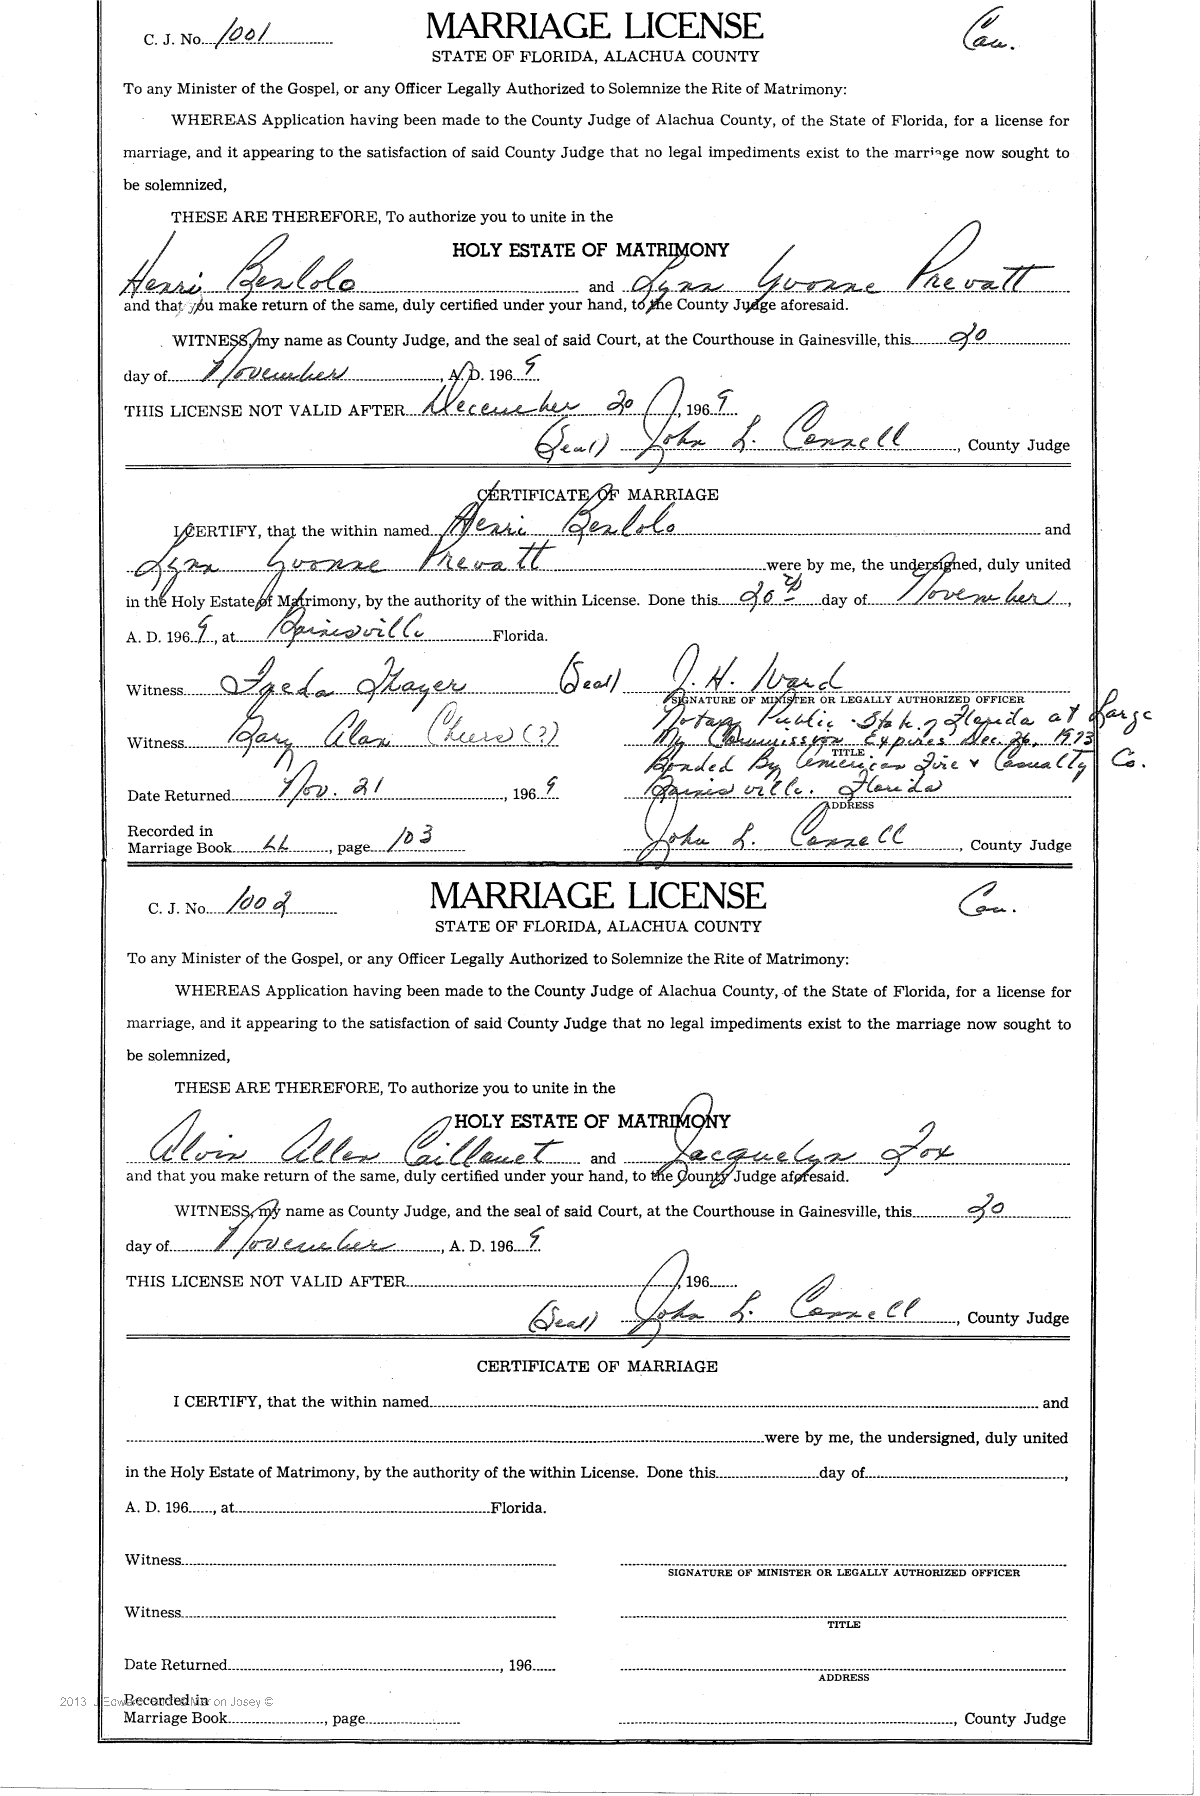 C. J. No. 1001
MARRIAGE LICENSE
Cau.
STATE OF FLORIDA, ALACHUA COUNTY
To any Minister of the Gospel, or any Officer Legally Authorized to Solemnize the Rite of Matrimony:
WHEREAS Application having been made to the County Judge of Alachua County, of the State of Florida, for a license for
marriage, and it appearing to the satisfaction of said County Judge that no legal impediments exist to the marriage now sought to
be solemnized,
THESE ARE THEREFORE, To authorize you to unite in the
HOLY ESTATE OF MATRIMONY
Henri Benlolo and Lynn Yvonne Prevatt
and that you make return of the same, duly certified under your hand, to the County Judge aforesaid.
WITNESS, my name as County Judge, and the seal of said Court, at the Courthouse in Gainesville, this 20
day of November, A. D. 196 9
THIS LICENSE NOT VALID AFTER December 20, 196 9
(Seal) John L. Connell, County Judge
CERTIFICATE OF MARRIAGE
I CERTIFY, that the within named Henri Benlolo and
Lynn Yvonne Prevatt were by me, the undersigned, duly united
in the Holy Estate of Matrimony, by the authority of the within License. Done this 20th day of November,
A. D. 196 9, at Gainesville Florida.
Witness Freda Thayer (Seal) J. H. Ward
SIGNATURE OF MINISTER OR LEGALLY AUTHORIZED OFFICER
Notary Public State of Florida at Large
Witness Gary Alan Cheers (?) My Commission Expires Dec. 26, 1973
TITLE
Bonded By American Fire & Casualty Co.
Date Returned Nov. 21, 196 9 Gainesville, Florida
ADDRESS
Recorded in
Marriage Book LL, page 103 John L. Connell, County Judge
C. J. No. 1002
MARRIAGE LICENSE
Cau.
STATE OF FLORIDA, ALACHUA COUNTY
To any Minister of the Gospel, or any Officer Legally Authorized to Solemnize the Rite of Matrimony:
WHEREAS Application having been made to the County Judge of Alachua County, of the State of Florida, for a license for
marriage, and it appearing to the satisfaction of said County Judge that no legal impediments exist to the marriage now sought to
be solemnized,
THESE ARE THEREFORE, To authorize you to unite in the
HOLY ESTATE OF MATRIMONY
Alvin Allen Caillouet and Jacquelyn Fox
and that you make return of the same, duly certified under your hand, to the County Judge aforesaid.
WITNESS, my name as County Judge, and the seal of said Court, at the Courthouse in Gainesville, this 20
day of November, A. D. 196 9
THIS LICENSE NOT VALID AFTER, 196
(Seal) John L. Connell, County Judge
CERTIFICATE OF MARRIAGE
I CERTIFY, that the within named and
were by me, the undersigned, duly united
in the Holy Estate of Matrimony, by the authority of the within License. Done this day of,
A. D. 196, at Florida.
Witness
SIGNATURE OF MINISTER OR LEGALLY AUTHORIZED OFFICER
Witness
TITLE
Date Returned, 196
ADDRESS
Recorded in
2013 Josey ©
Marriage Book, page, County Judge